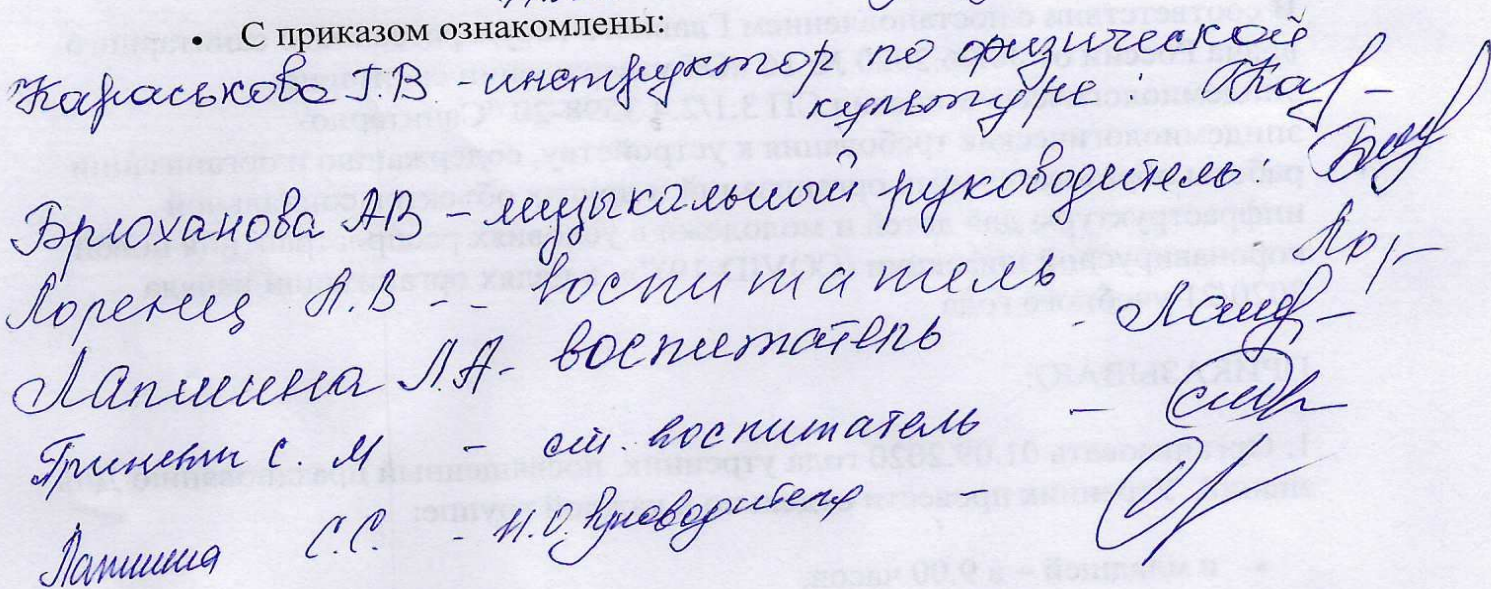 • С приказом ознакомлены:
Караськова Г.В - инструктор по физической
культуре:
Брюханова АВ - музыкальный руководитель:
Лоренец Н.В - - воспитатель -
Лапшина Л.А - воспитатель -
С. М - ст. воспитатель -
Лапшина С.С. - И.О. Руководителя -